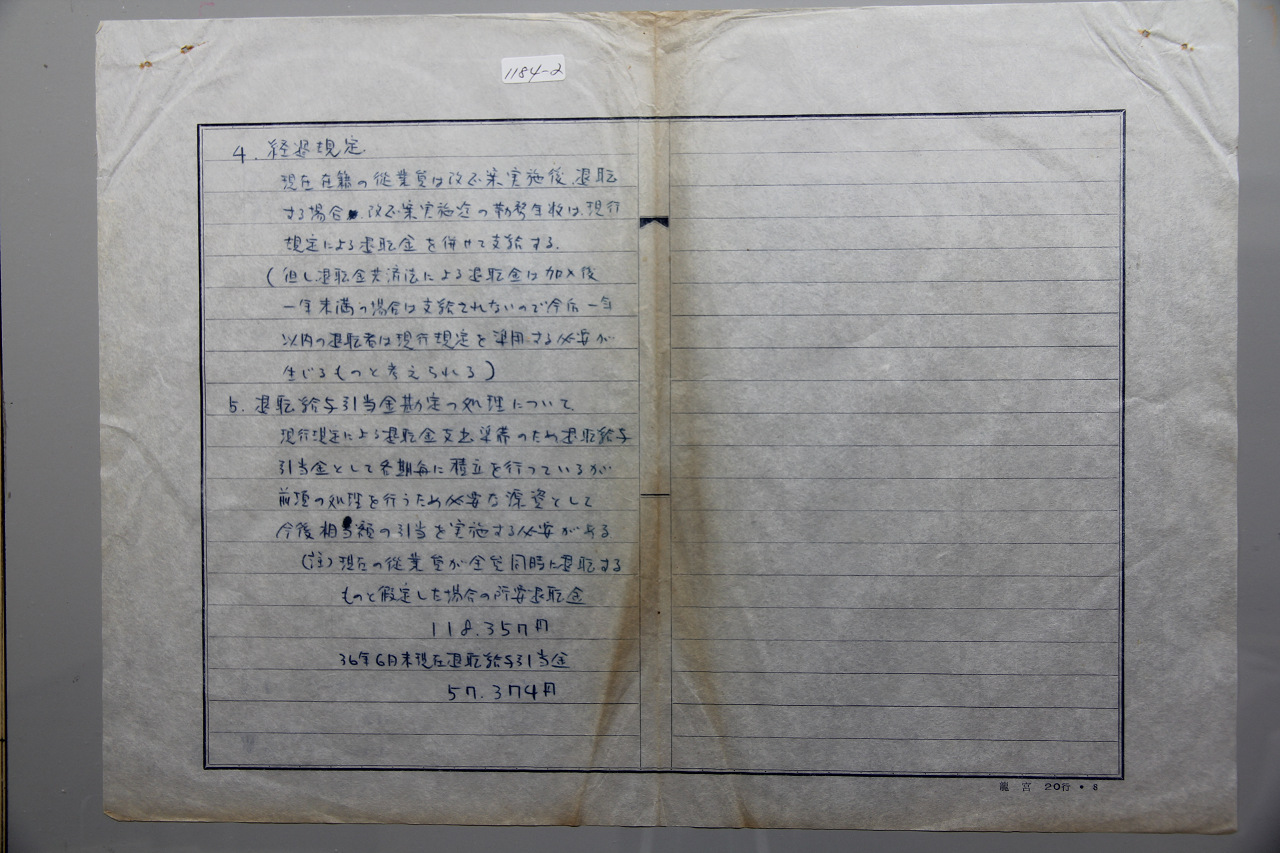 1184-2
4. 経過規定
現在在籍の従業員は改正案実施後、退職
する場合、改正案実施迄の勤務年数は、現行
規定による退職金を併せて支給する.
(但し退職金共済法による退職金は加入後
一年未満の場合は支給されないので今后一年
以内の退職者は現行規定を準用する必要が
生じるものと考えられる)
5. 退職給与引当金勘定の処理について
現行規定による退職金支出準備のため退職給与
引当金として各期毎に積立を行っているが
前項の処理を行うため必要な源資として
今後相当額の引当を実施する必要がある
(註)現在の従業員が全員同時に退職する
ものと仮定した場合の所要退職金
118.357円
36年6月末現在退職給与引当金
57.374円
龍宮 20行・8